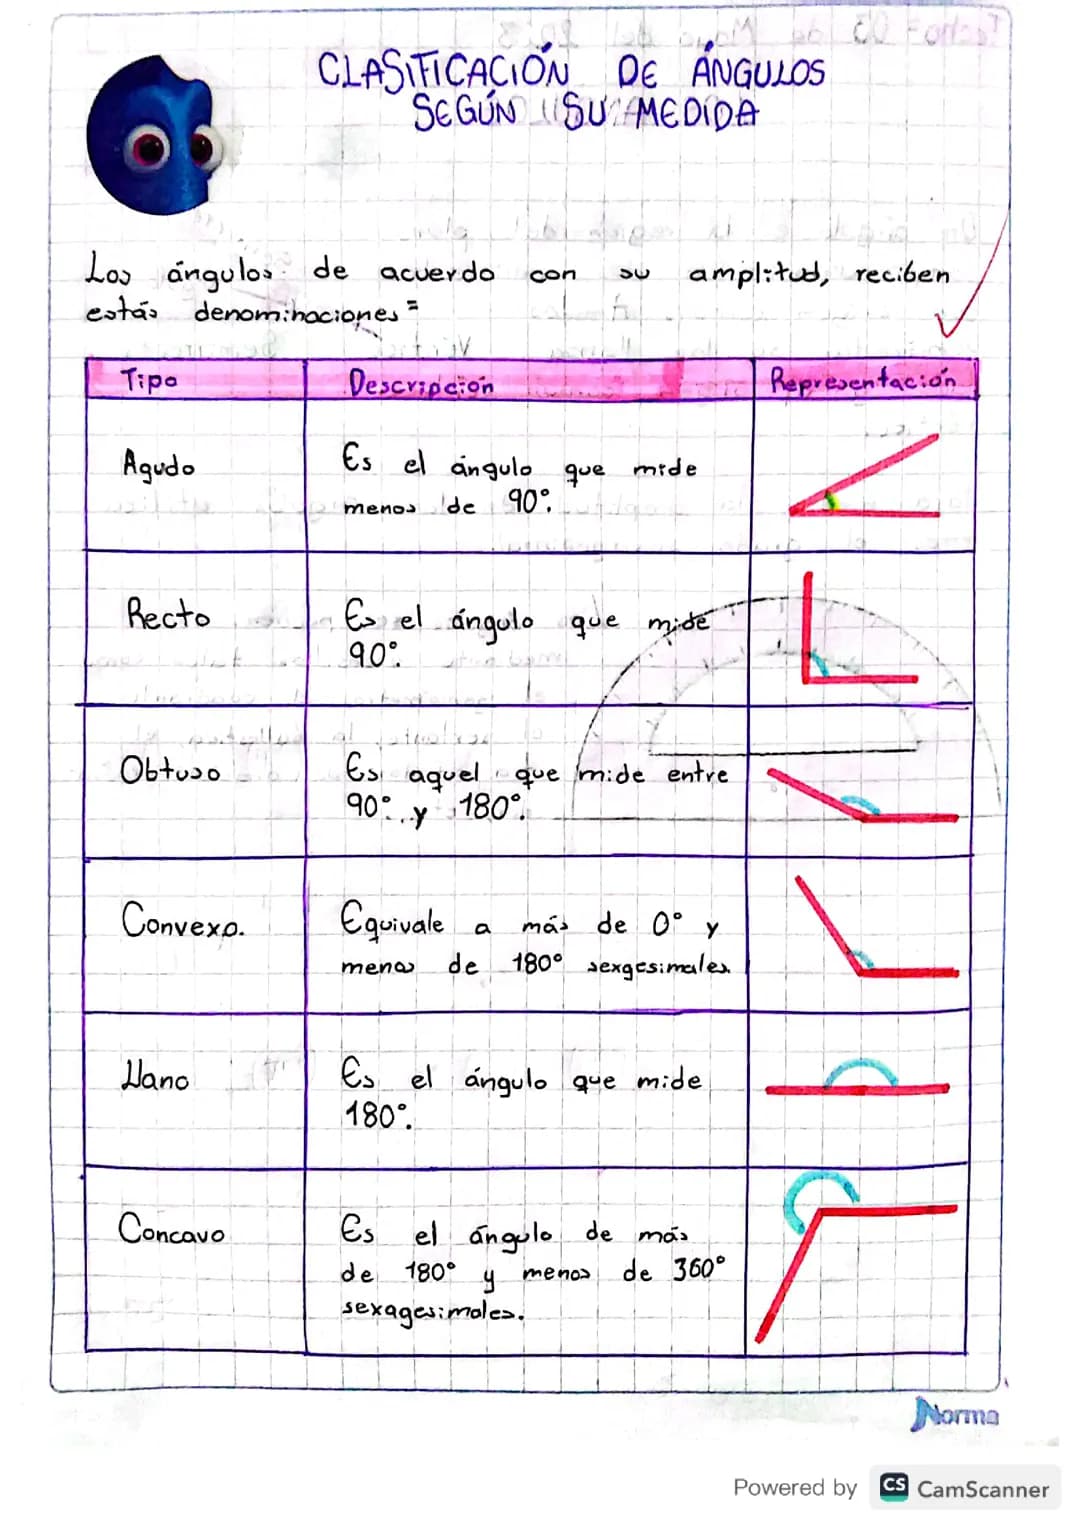 CLASIFICACIÓN DE ÁNGULOS
SEGÚN SU MEDIDA
Los ángulos de acuerdo con su amplitud, reciben
estás denominaciones=
Tipo Descripción Representación
Agudo
Es el ángulo que mide
menos de 90°.
Recto
Es el ángulo que mide
90°.
Obtuso
Es aquel que mide entre
90° y 180°.
Convexo.
Equivale a más de 0° y
menos de 180° sexgesimales
Llano
Es el ángulo que mide
180°.
Concavo
Es el ángulo de más
de 180° y menos de 360°
sexagesimales.
Norma
Powered by CS CamScanner